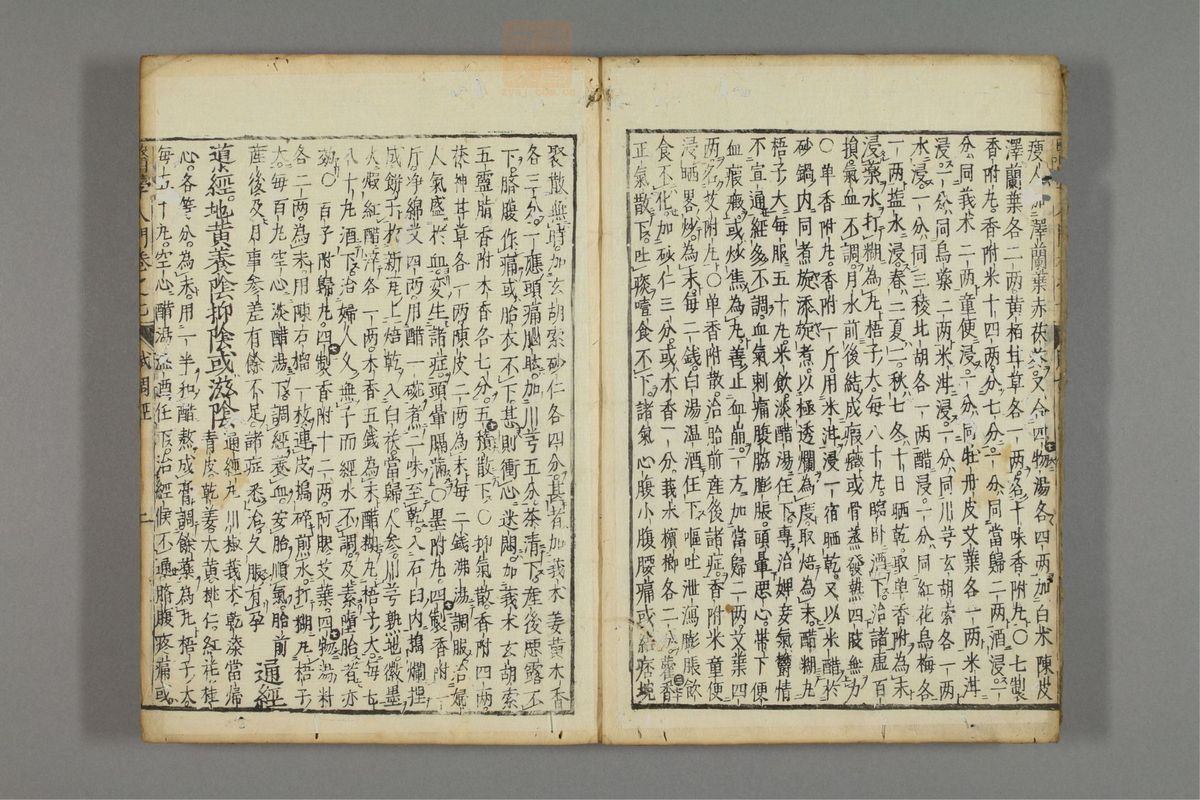 瘦人加澤蘭葉赤茯苓又合四物湯各四兩加白朮陳皮
澤蘭葉各二兩黃栢甘草各一兩名十味香附丸○七製
香附丸香附米十四兩分七分一分同當歸二兩酒浸一
分同莪朮二兩童便浸一分同牡丹皮艾葉各一兩米泔
浸一分同烏藥二兩米泔浸一分同川芎玄胡索各一兩
水浸一分同三稜北胡各一兩醋浸一分同紅花烏梅各
一兩塩水浸春二夏一秋七冬十日晒乾取單香附為末
浸藥水打糊為丸梧子大每八十丸臨卧酒下治諸虛百
損氣血不調月水前後結成瘕癥或骨蒸發熱四肢無力
○單香附丸香附一斤用米泔浸一宿晒乾又以米醋於
砂鍋內同煮旋添旋煮以極透爛為度取焙為末醋糊丸
梧子大每服五十丸米飲淡醋湯任下專治婢妾氣鬱情
不宣通經多不調血氣刺痛腹脇膨脹頭暈惡心帶下便
血瘕癥或炒焦為丸善止血崩一方加當歸二兩艾葉四
兩名艾附丸○單香附散治胎前產後諸症香附米童便
浸晒畧炒為末每二錢白湯温酒任下嘔吐泄瀉膨脹飲
食不化加砂仁三分或木香一分莪朮檳榔各二分藿香
正氣散下吐痰噎食不下諸氣心腹小腹腰痛或結痞塊
聚散無時加玄胡索砂仁各四分甚者加莪朮姜黃木香
各三分一應頭痛腦㽲加川芎五分茶清下產後惡露不
下臍腹作痛或胎衣不下甚則衝心迷悶加莪朮玄胡索
五靈脂香附木香各七分五積散下○抑氣散香附四兩
茯神甘草各一兩陳皮二兩為末每二錢沸湯調服治婦
人氣盛於血變生諸症頭暈膈滿○墨附丸四製香附一
斤淨綿艾四兩用醋一碗煮二味至乾入石臼內搗爛捏
成餅子於新瓦上焙乾入白茯當歸人參川芎熟地徽墨
火煅紅醋淬各一兩木香五錢為末醋糊丸梧子大每七
八十丸酒下治婦人久無子而經水不調及素墮胎者亦
效○百子附歸丸四製香附十二兩阿膠艾葉四物湯料
各二兩為末用陳石榴一枚連皮搗碎煎水打糊丸梧子
大每百丸空心淡醋湯下調經養血安胎順氣胎前
產後及月事參差有餘不足諸症悉治久服有孕 通經
導經地黃養陰抑陰或滋陰通經丸川椒莪朮乾漆當歸
青皮乾姜大黃桃仁紅花桂
心各等分為末用一半和醋熬成膏調餘藥為丸梧子大
每五十丸空心醋湯温酒任下治經候不通臍腹疼痛或